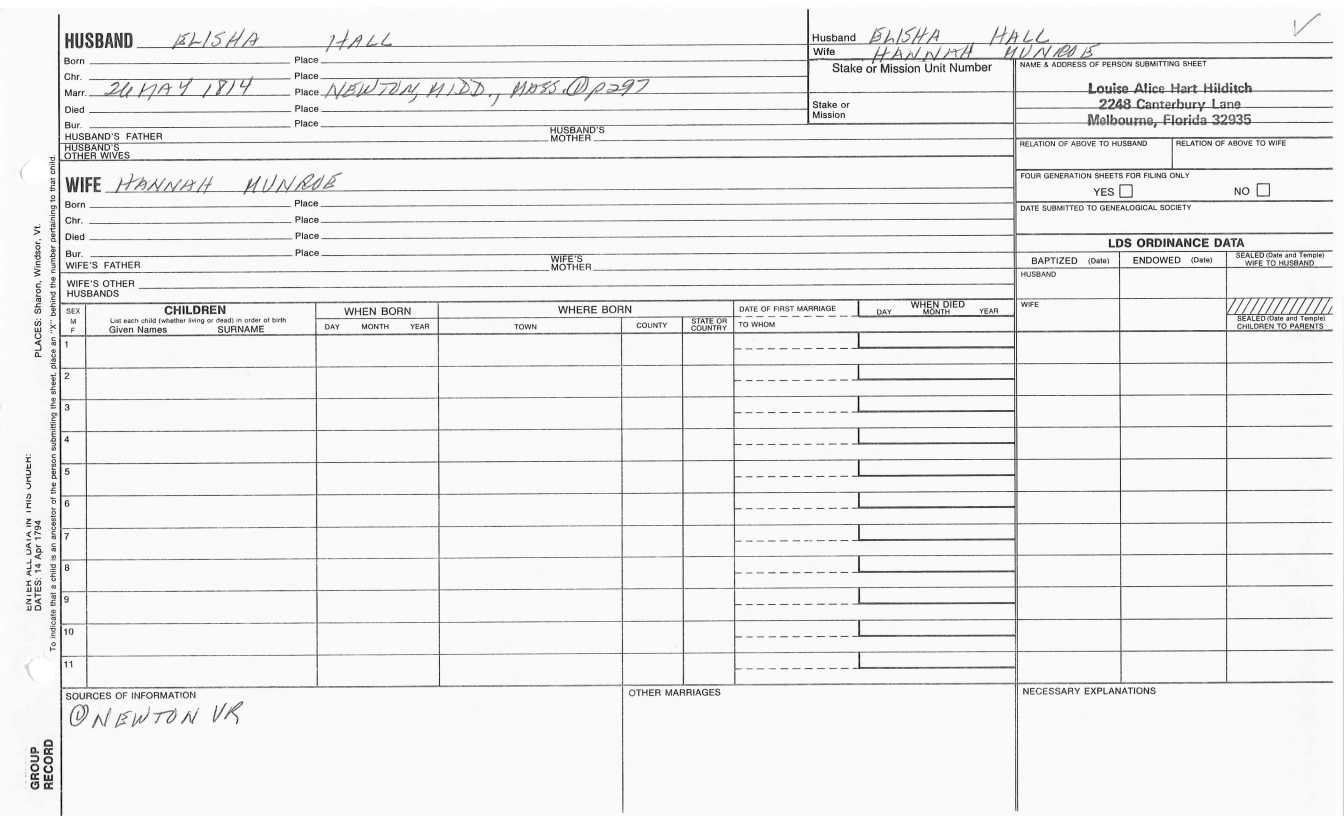 HUSBAND ELISHA HALL
Born Place
Chr. Place
Marr. 26 MAY 1814 Place NEWTON, MIDD., MASS. ① p297
Died Place
Bur. Place
HUSBAND'S FATHER HUSBAND'S MOTHER
HUSBAND'S OTHER WIVES
WIFE HANNAH MUNROE
Born Place
Chr. Place
Died Place
Bur. Place
WIFE'S FATHER WIFE'S MOTHER
WIFE'S OTHER HUSBANDS
Husband ELISHA HALL
Wife HANNAH MUNROE
Stake or Mission Unit Number
Stake or Mission
NAME & ADDRESS OF PERSON SUBMITTING SHEET
Louise Alice Hart Hilditch
2248 Canterbury Lane
Melbourne, Florida 32935
RELATION OF ABOVE TO HUSBAND RELATION OF ABOVE TO WIFE
FOUR GENERATION SHEETS FOR FILING ONLY
YES NO
DATE SUBMITTED TO GENEALOGICAL SOCIETY
LDS ORDINANCE DATA
BAPTIZED (Date) ENDOWED (Date) SEALED (Date and Temple) WIFE TO HUSBAND
HUSBAND
WIFE
SEALED (Date and Temple) CHILDREN TO PARENTS
SEX M F
CHILDREN
List each child (whether living or dead) in order of birth
Given Names SURNAME
WHEN BORN
DAY MONTH YEAR
WHERE BORN
TOWN COUNTY STATE OR COUNTRY
DATE OF FIRST MARRIAGE
TO WHOM
WHEN DIED
DAY MONTH YEAR
1
2
3
4
5
6
7
8
9
10
11
SOURCES OF INFORMATION
① NEWTON VR
OTHER MARRIAGES
NECESSARY EXPLANATIONS
ENTER ALL DATA IN THIS ORDER:
DATES: 14 Apr 1794 PLACES: Sharon, Windsor, Vt.
To indicate that a child is an ancestor of the person submitting the sheet, place an "X" behind the number pertaining to that child.
GROUP RECORD